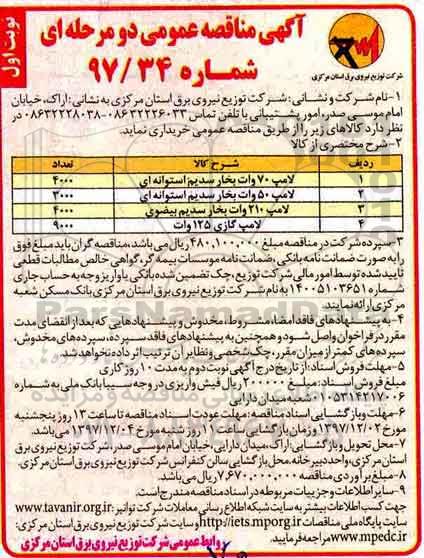 نوبت اول
آگهی مناقصه عمومی دو مرحله ای
شماره ۹۷/۳۴
شرکت توزیع نیروی برق استان مرکزی
۱-نام شرکت و نشانی: شرکت توزیع نیروی برق استان مرکزی به نشانی: اراک، خیابان
امام موسی صدر، امور پشتیبانی با تلفن تماس ۰۸۶۳۲۲۲۶۰۳۳-۰۸۶۳۲۲۲۸۰۳۸ در
نظر دارد کالاهای زیر را از طریق مناقصه عمومی خریداری نماید.
۲-شرح مختصری از کالا
ردیف شرح کالا تعداد
۱ لامپ ۷۰ وات بخار سدیم استوانه ای ۴۰۰۰
۲ لامپ ۵۰ وات بخار سدیم استوانه ای ۳۰۰۰
۳ لامپ ۲۱۰ وات بخار سدیم بیضوی ۴۰۰۰
۴ لامپ گازی ۱۲۵ وات ۹۰۰۰
۳-سپرده شرکت در مناقصه مبلغ ۴۸۰,۱۰۰,۰۰۰ ریال می باشد، مناقصه گران باید مبلغ فوق
را به صورت ضمانت نامه بانکی، ضمانت نامه موسسات بیمه گر، گواهی خالص مطالبات قطعی
تایید شده توسط امور مالی شرکت توزیع، چک تضمین شده بانکی یا واریز وجه به حساب جاری
شماره ۱۴۰۰۵۱۰۳۶۵۱ به نام شرکت توزیع نیروی برق استان مرکزی بانک مسکن شعبه
مرکزی ارائه نمایند.
۴- به پیشنهادهای فاقد امضاء، مشروط، مخدوش و پیشنهادهایی که بعد از انقضای مدت
مقرر در فراخوان واصل شود و همچنین به پیشنهادهای فاقد سپرده، سپرده های مخدوش،
سپرده های کمتر از میزان مقرر، چک شخصی و نظایر آن ترتیب اثر داده نخواهد شد.
۵-مهلت فروش اسناد: از تاریخ درج آگهی نوبت دوم به مدت ۱۰ روز کاری
مبلغ فروش اسناد: مبلغ ۲۰۰۰۰۰ ریال فیش واریزی در وجه سیبا بانک ملی به شماره
شعبه میدان دارایی
۶-مهلت و بازگشایی اسناد مناقصه: مهلت عودت اسناد مناقصه تا ساعت ۱۳ روز پنجشنبه
مورخ ۱۳۹۷/۱۲/۰۲ و زمان بازگشایی ساعت ۱۱ روز شنبه مورخ ۱۳۹۷/۱۲/۰۴ می باشد.
۷-محل تحویل و بازگشایی: اراک، میدان دارایی، خیابان امام موسی صدر، شرکت توزیع نیروی برق
استان مرکزی، واحد دبیرخانه. محل بازگشایی سالن کنفرانس شرکت توزیع نیروی برق استان مرکزی.
۸-مبلغ برآوردی مناقصه ۷,۶۷۰,۰۰۰,۰۰۰ ریال می باشد.
۹-سایر اطلاعات و جزییات مربوطه در اسناد مناقصه مندرج است.
جهت کسب اطلاعات بیشتر به وب سایت شبکه اطلاع رسانی معاملات شرکت توانیر: www.tavanir.org.ir
سایت پایگاه ملی مناقصات http://iets.mporg.ir و سایت شرکت توزیع نیروی برق استان مرکزی
www.mpedc.ir مراجعه فرمایید.
روابط عمومی شرکت توزیع نیروی برق استان مرکزی